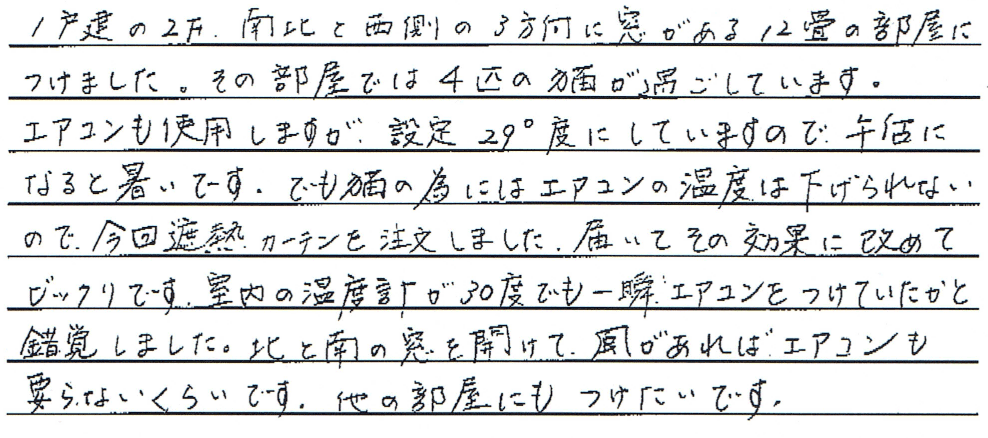 1戸建の2F、南北と西側の3方向に窓がある12畳の部屋に
つけました。その部屋では4匹の猫が過ごしています。
エアコンも使用しますが、設定29°度にしていますので、午後に
なると暑いです。でも猫の為にはエアコンの温度は下げられない
ので、今回遮熱カーテンを注文しました。届いてその効果に改めて
ビックリです。室内の温度計が30度でも一瞬、エアコンをつけていたかと
錯覚しました。北と南の窓を開けて、風があれば、エアコンも
要らないくらいです。他の部屋にもつけたいです。